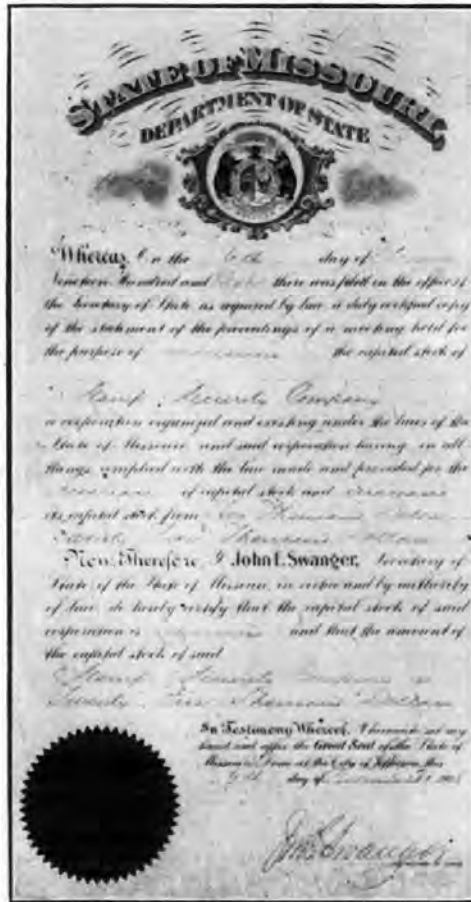 STATE OF MISSOURI,
DEPARTMENT OF STATE
Whereas, On the 6th day of
Nineteen Hundred and there was filed in the office of
the Secretary of State as required by law a duly certified copy
of the statement of the proceedings of a meeting held for
the purpose of the capital stock of
Stamp Security Company
a corporation organized and existing under the laws of the
State of Missouri and said corporation having in all
things complied with the law made and provided for the
of capital stock and
its capital stock from Thousand
Thousand Dollars
Now, Therefore, I John E. Swanger, Secretary of
State of the State of Missouri, in virtue and by authority
of law, do hereby certify that the capital stock of said
corporation is and that the amount of
the capital stock of said
Stamp Security Company is
Thousand Dollars
In Testimony Whereof, I hereunto set my
hand and affix the Great Seal of the State of
Missouri. Done at the City of Jefferson, this
day of
Jno E Swanger